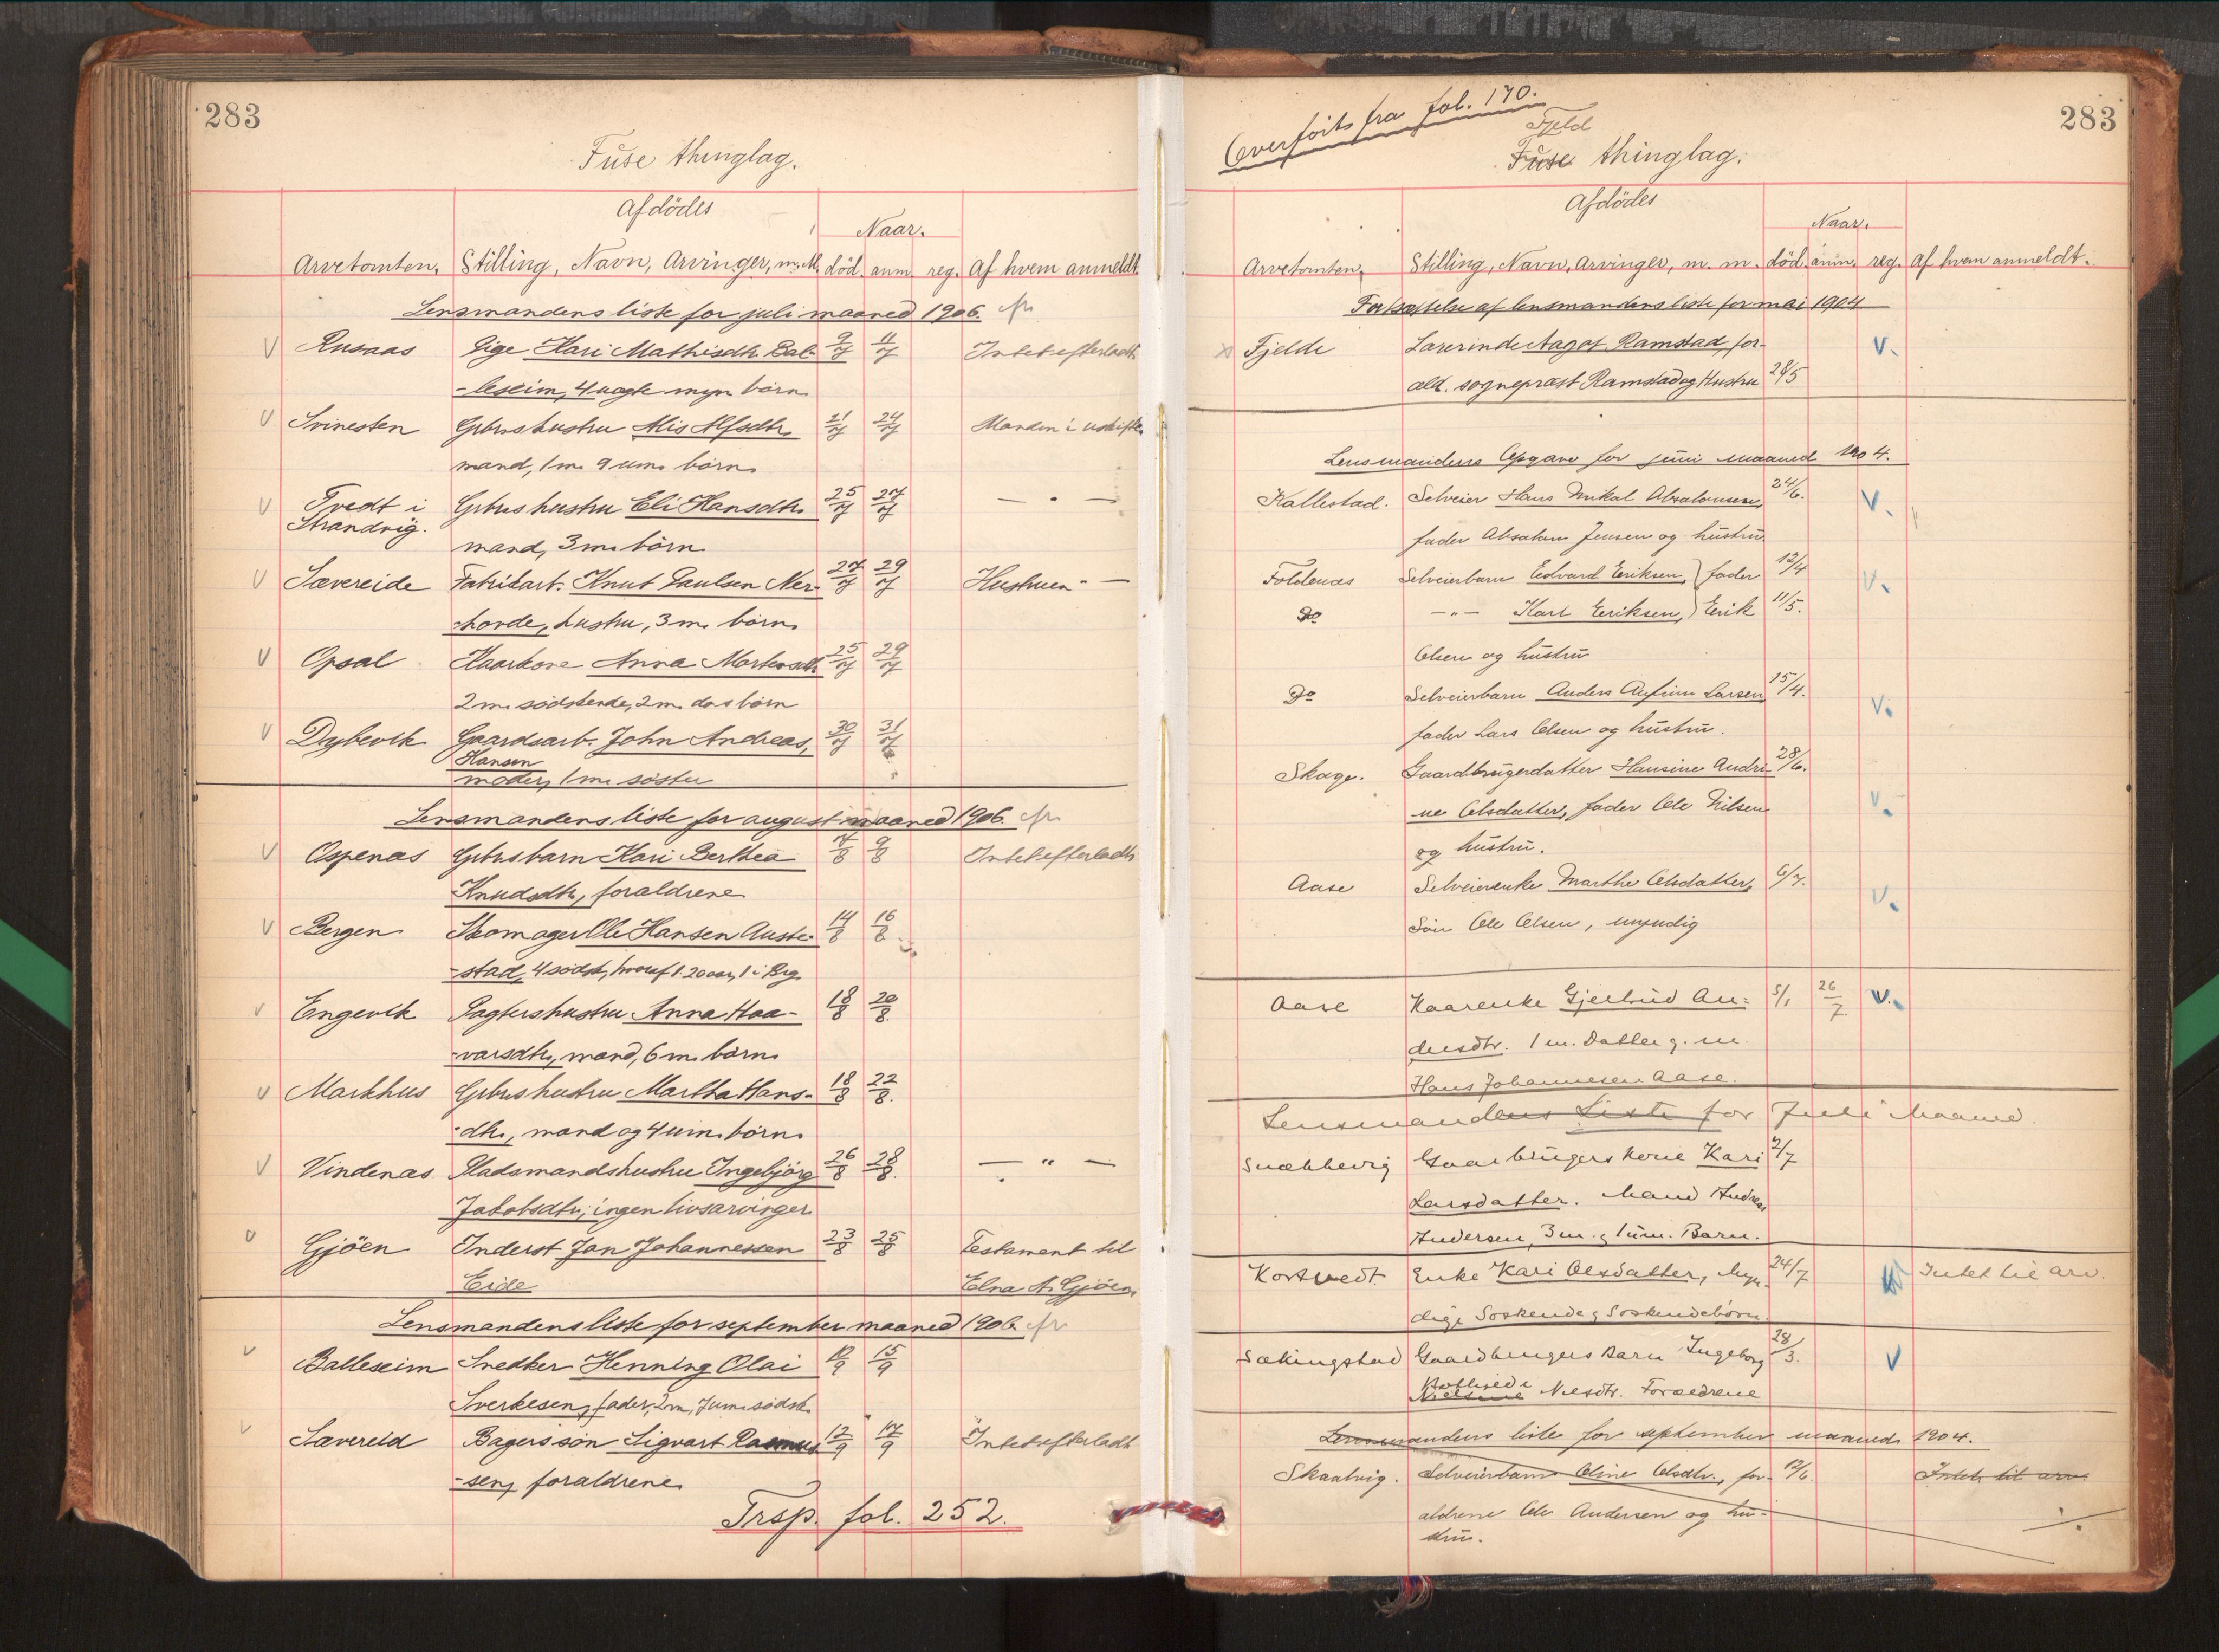 283
Fuse thinglag.
Afdödes
Naar.
Arvetomten, Stilling, Navn, Arvinger, m. M. död. anm. reg. Af hvem anmeldt.
Lensmandens liste for juli maaned 1906.
V Rusaas Pige Kari Mathisdtr. Bal- 9/7 11/7 Intet efterladt
-leseim, 4 myn. börn.
V Svinesten Gbrs hustru Alis Alfsdtr. 21/7 24/7 Manden i uskifte
mand, 1 m. 9 um. börn.
V Tvedt i Gbrs hustru Eli Hansdtr. 25/7 27/7 — " —
Strandvig.
mand, 3 m. börn
V Sævereide Fabrikarb. Knut Paulsen Ner- 27/7 29/7 Hustruen " —
-hovde, hustru, 3 m. börn.
V Opsal Kaarkone Anna Mortensdtr 25/7 29/7
2 m. södskende, 2 m. do s börn
V Dybevik Gaardsarb. John Andreas, 30/7 31/7
Hansen
moder, 1 m. söster
Lensmandens liste for august maaned 1906.
V Ospenæs Gbrs barn Kari Berthea 7/8 9/8 Intet efterladt
Knudsdtr, foraldrene
V Bergen Skomager Ole Hansen Auste- 14/8 16/8
-stad, 4 södsk, hvoraf 1. 20 aar, 1 i Brg.
V Engevik Pagters hustru Anna Haa- 18/8 20/8.
-varsdtr, mand, 6 m. börn.
V Markhus Gbrs hustru Martha Hans- 18/8 22/8.
-dtr., mand og 4 um. börn.
V Vindenæs. Pladsmands hustru Ingebjörg 26/8 28/8. — " —
Jakobsdtr; ingen livsarvinger.
V Gjöen Inderst Jan Johannessen 23/8 25/8 Testament til
Eide Elna A. Gjöen
Lensmandens liste for september maaned 1906.
V Balleseim Snedker Henning Olai 12/9 15/9
Sverkesen, fader, 2 m, 7 um. södsk.
V Sævereid Bagerssön Sigvart Rasmus 12/9 17/9 Intet efterladt
-sen, foraldrene.
Trsp. fol. 252.
Overförts fra fol. 170.
283
Fjeld
Fuse thinglag.
Afdödes
Naar.
Arvetomten. Stilling, Navn, Arvinger, m. m. död. anm. reg. Af hvem anmeldt.
Fortsættelse af lensmandens liste for mai 1904
x Fjelde Lærerinde Aagot Ramstad, for- V.
æld. sogneprest Ramstad og Hustru 28/5
Lensmandens Opgave for juni maaned 1904.
Kallestad. Selveier Hans Mikal Absalomsen, 24/6. V.
fader Absalom Jensen og hustru
Foldenæs Selveierbarn Edvard Eriksen, } fader 12/4 V.
Do — " — Karl Eriksen, } Erik 11/5.
Olsen og hustru
Do Selveierbarn Anders Anfinn Larsen 15/4. V.
fader Lars Olsen og hustru.
Skage. Gaardbrugerdatter Hansine Andri- 28/6.
ne Olsdatter, fader Ole Nilsen V.
og hustru.
Aase Selveierenke Marthe Olsdatter, 6/7. V.
Sön Ole Olsen, umyndig
Aase Kaarenke Gjertrud An- 5/1 26/7 V.
dersdtr. 1 m. Datter g. m.
Hans Johannesen Aase.
Lensmandens Liste for Juli Maaned.
Snekkevig Gaardbrugers kone Kari 2/7
Larsdatter. Mand Andreas
Andersen, 3 m. g 1 um. Barn.
Kortvedt. Enke Kari Olesdatter, Myn- 24/7 Intet til arv.
dige Söskende g Söskendebörn.
Sækingstad Gaardbrugers Barn Ingeborg 28/3. V
Nielsine Nilsdtr. Foraeldrene
Lensmandens liste for september maaned 1904.
Skaalvig. Selveierbarn Oline Olsdtr., for- 12/6. Intet til arv.
ældrene Ole Andersen og hu-
stru.